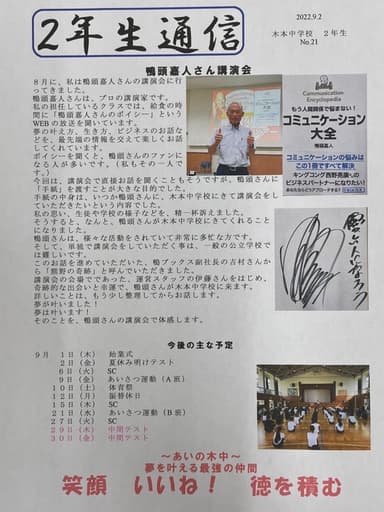 2年生通信
2022.9.2
木本中学校 2年生
No.21
鴨頭嘉人さん講演会
8月に、私は鴨頭嘉人さんの講演会に行
ってきました。
鴨頭さんは、プロの講演家です。
私の担任しているクラスでは、給食の時
間に「鴨頭嘉人さんのボイシー」という
WEBの放送を聞いています。
夢の叶え方、生き方、ビジネスのお話な
どを、最先端の情報を交えて楽しくお話
してくれています。
ボイシーを聞くと、鴨頭さんのファンに
なる人が多いです。(私もその一人で
す。)
今回は、講演会で直接お話を聞くこともそうですが、鴨頭さんに
「手紙」を渡すことが大きな目的でした。
手紙の中身は、いつか鴨頭さんに、木本中学校にきて講演会をし
ていただきたいという内容でした。
私の思い、生徒や学校の様子などを、精一杯訴えました。
そうすると、なんと、鴨頭さんが木本中学校にきてくれることに
なりました。
鴨頭さんは、様々な活動をされていて非常に多忙な方です。
そして、単独で講演会をしていただく事は、一般の公立学校で
は厳しいです。
このお話を進めていただいた、鴨ブックス副社長の吉村さんか
ら「熊野の奇跡」と呼んでいただきました。
講演会の会場であった、運営スタッフの伊藤さんをはじめ、
奇跡的な出会いと幸運で、鴨頭さんが木本中学校に来ます。
詳しいことは、もう少し整理してからお話します。
夢が叶いました!
夢は叶います!
そのことを、鴨頭さんの講演会で体感します。
Communication
Encyclopedia
もう人間関係で悩まない!
コミュニケーション
大全
鴨頭嘉人
コミュニケーションの悩みは
この1冊ですべて解決
キングコング西野亮廣への
ビジネスパートナーになりたい!
今後の主な予定
9月 1日(木) 始業式
2日(金) 夏休み明けテスト
6日(火) SC
9日(金) あいさつ運動(A班)
10日(土) 体育祭
12日(月) 振替休日
15日(木) SC
21日(水) あいさつ運動(B班)
27日(火) SC
29日(木) 中間テスト
30日(金) 中間テスト
～あいの木中～
夢を叶える最強の仲間
笑顔 いいね! 徳を積む